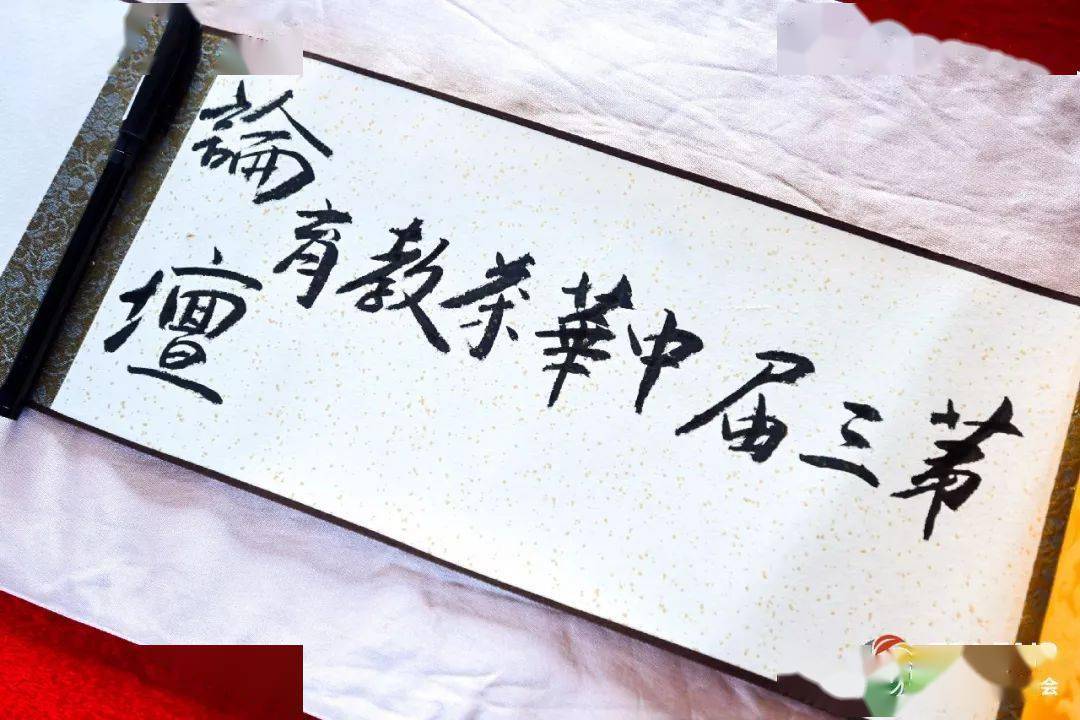 第三届中華茶教育
論壇
会